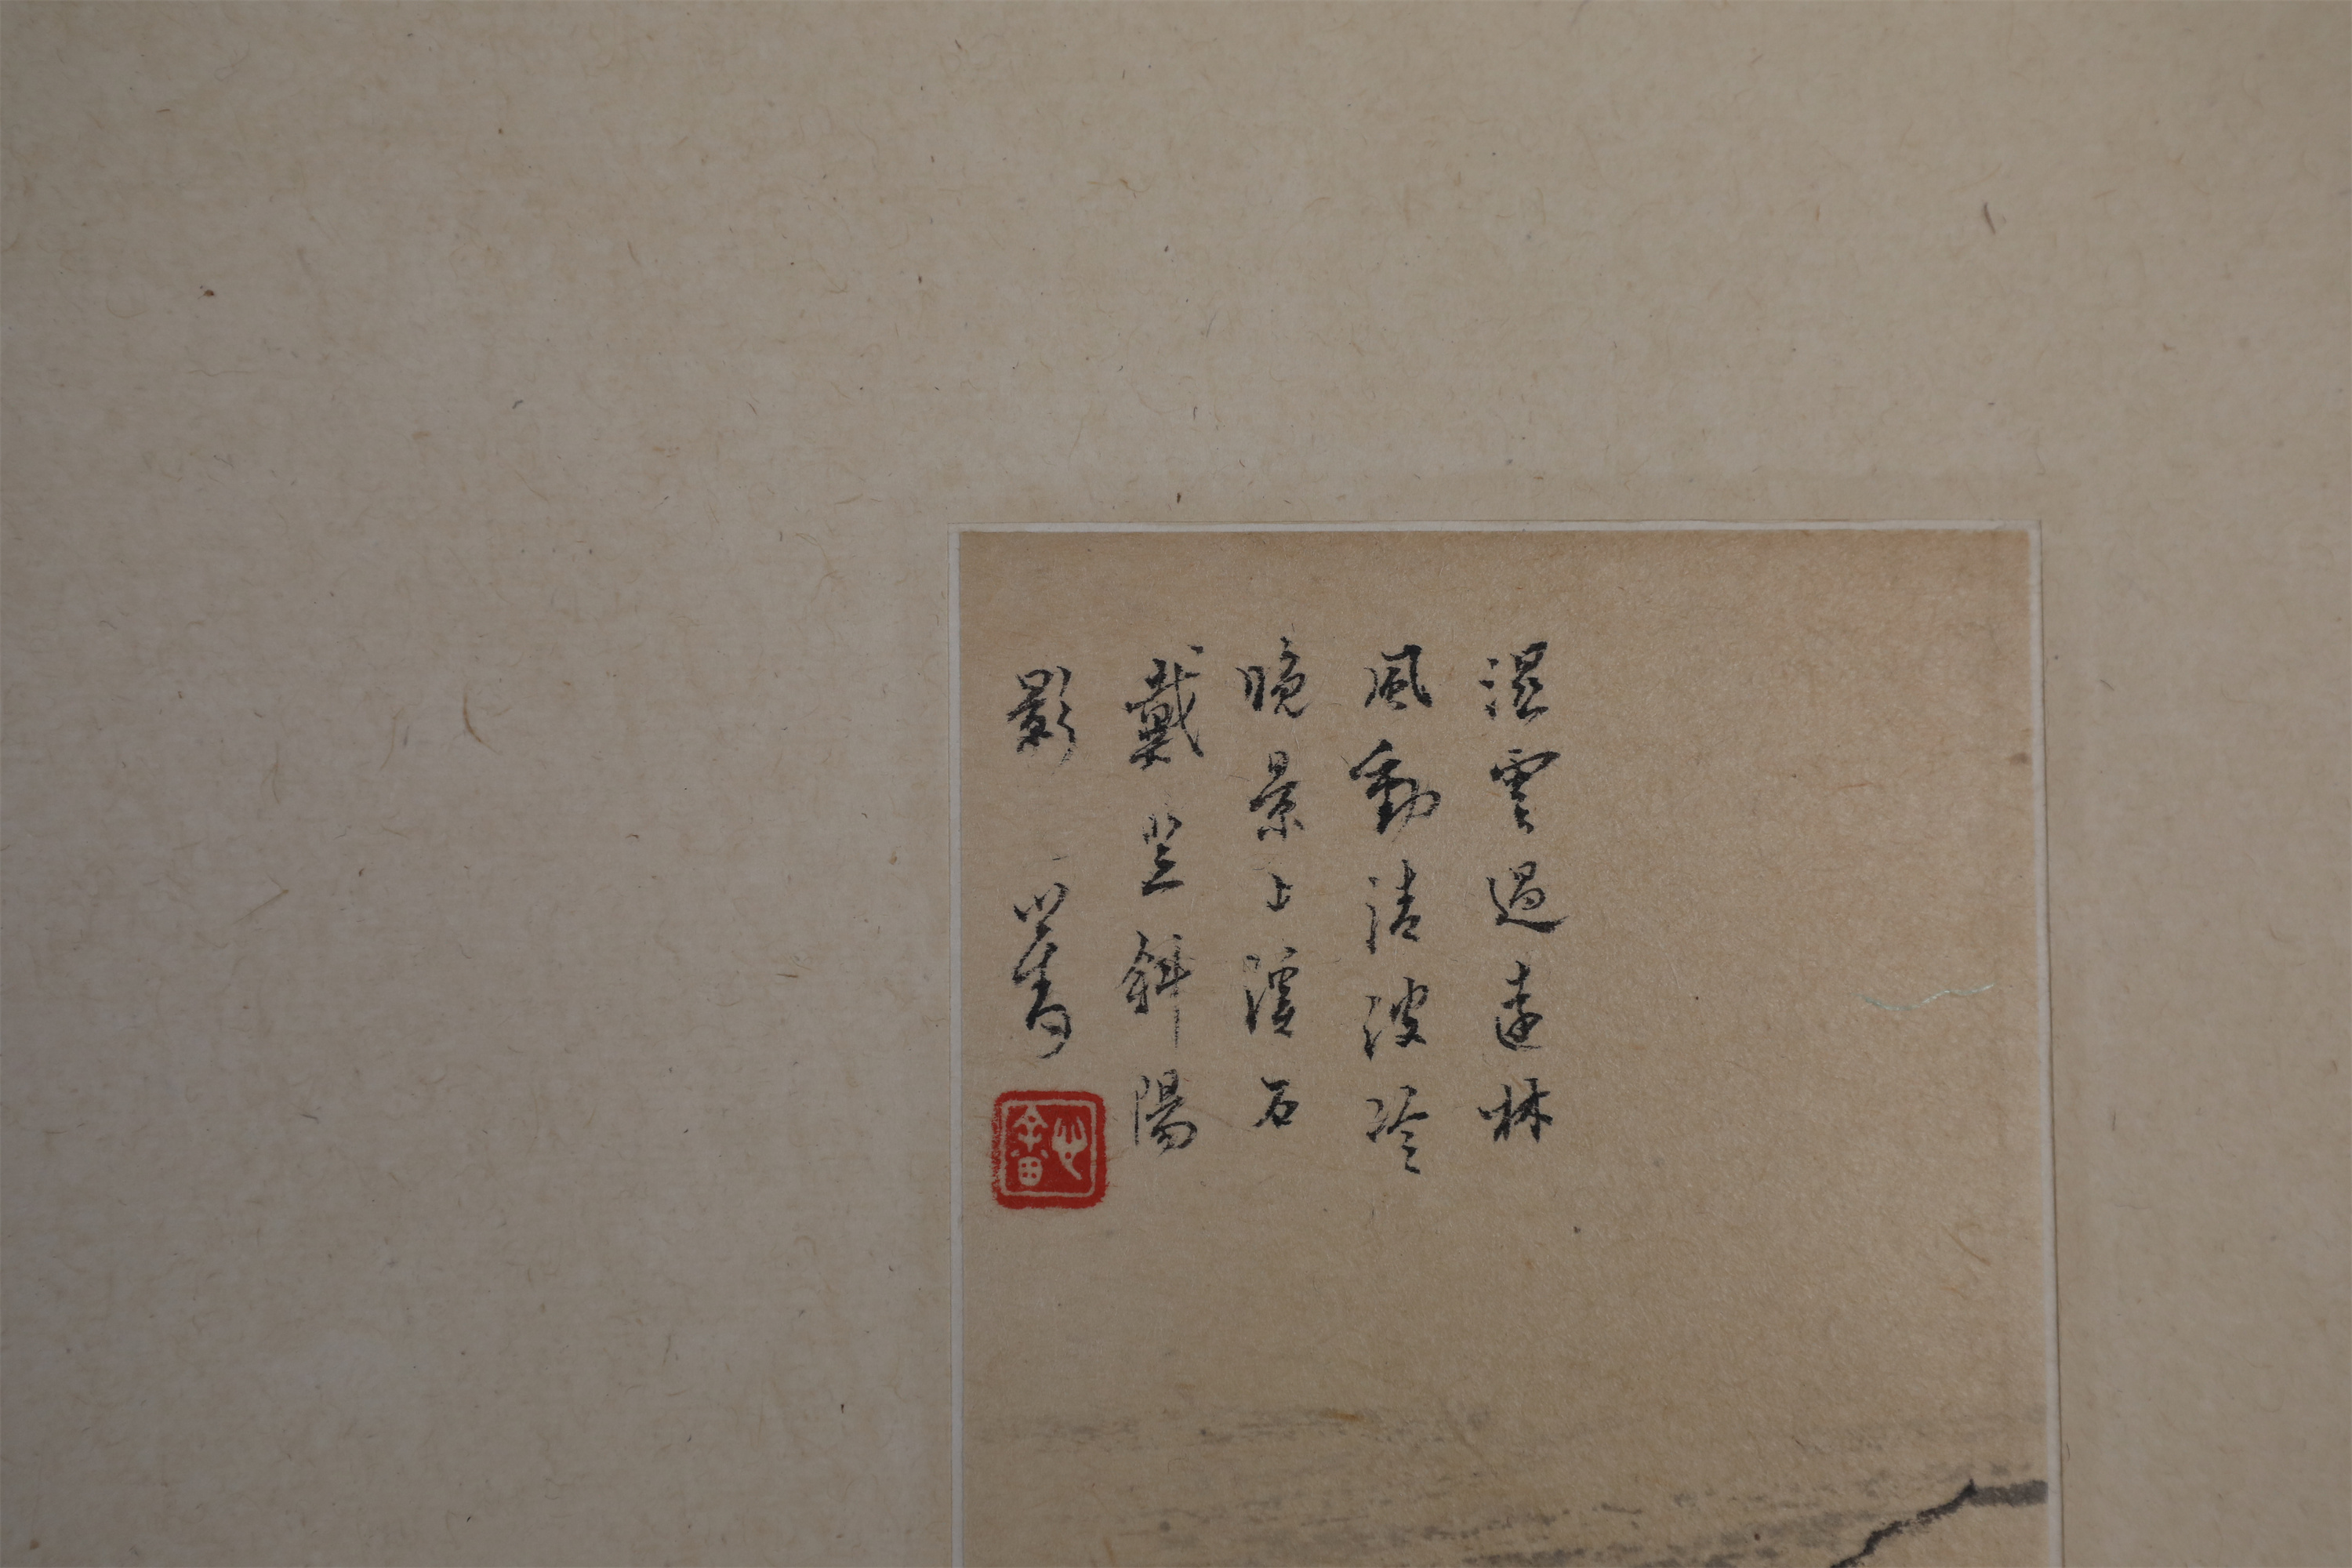 湿雲過遠林
風動清波冷
晚景上溪石
戴笠斜陽
影 心畬
心畬